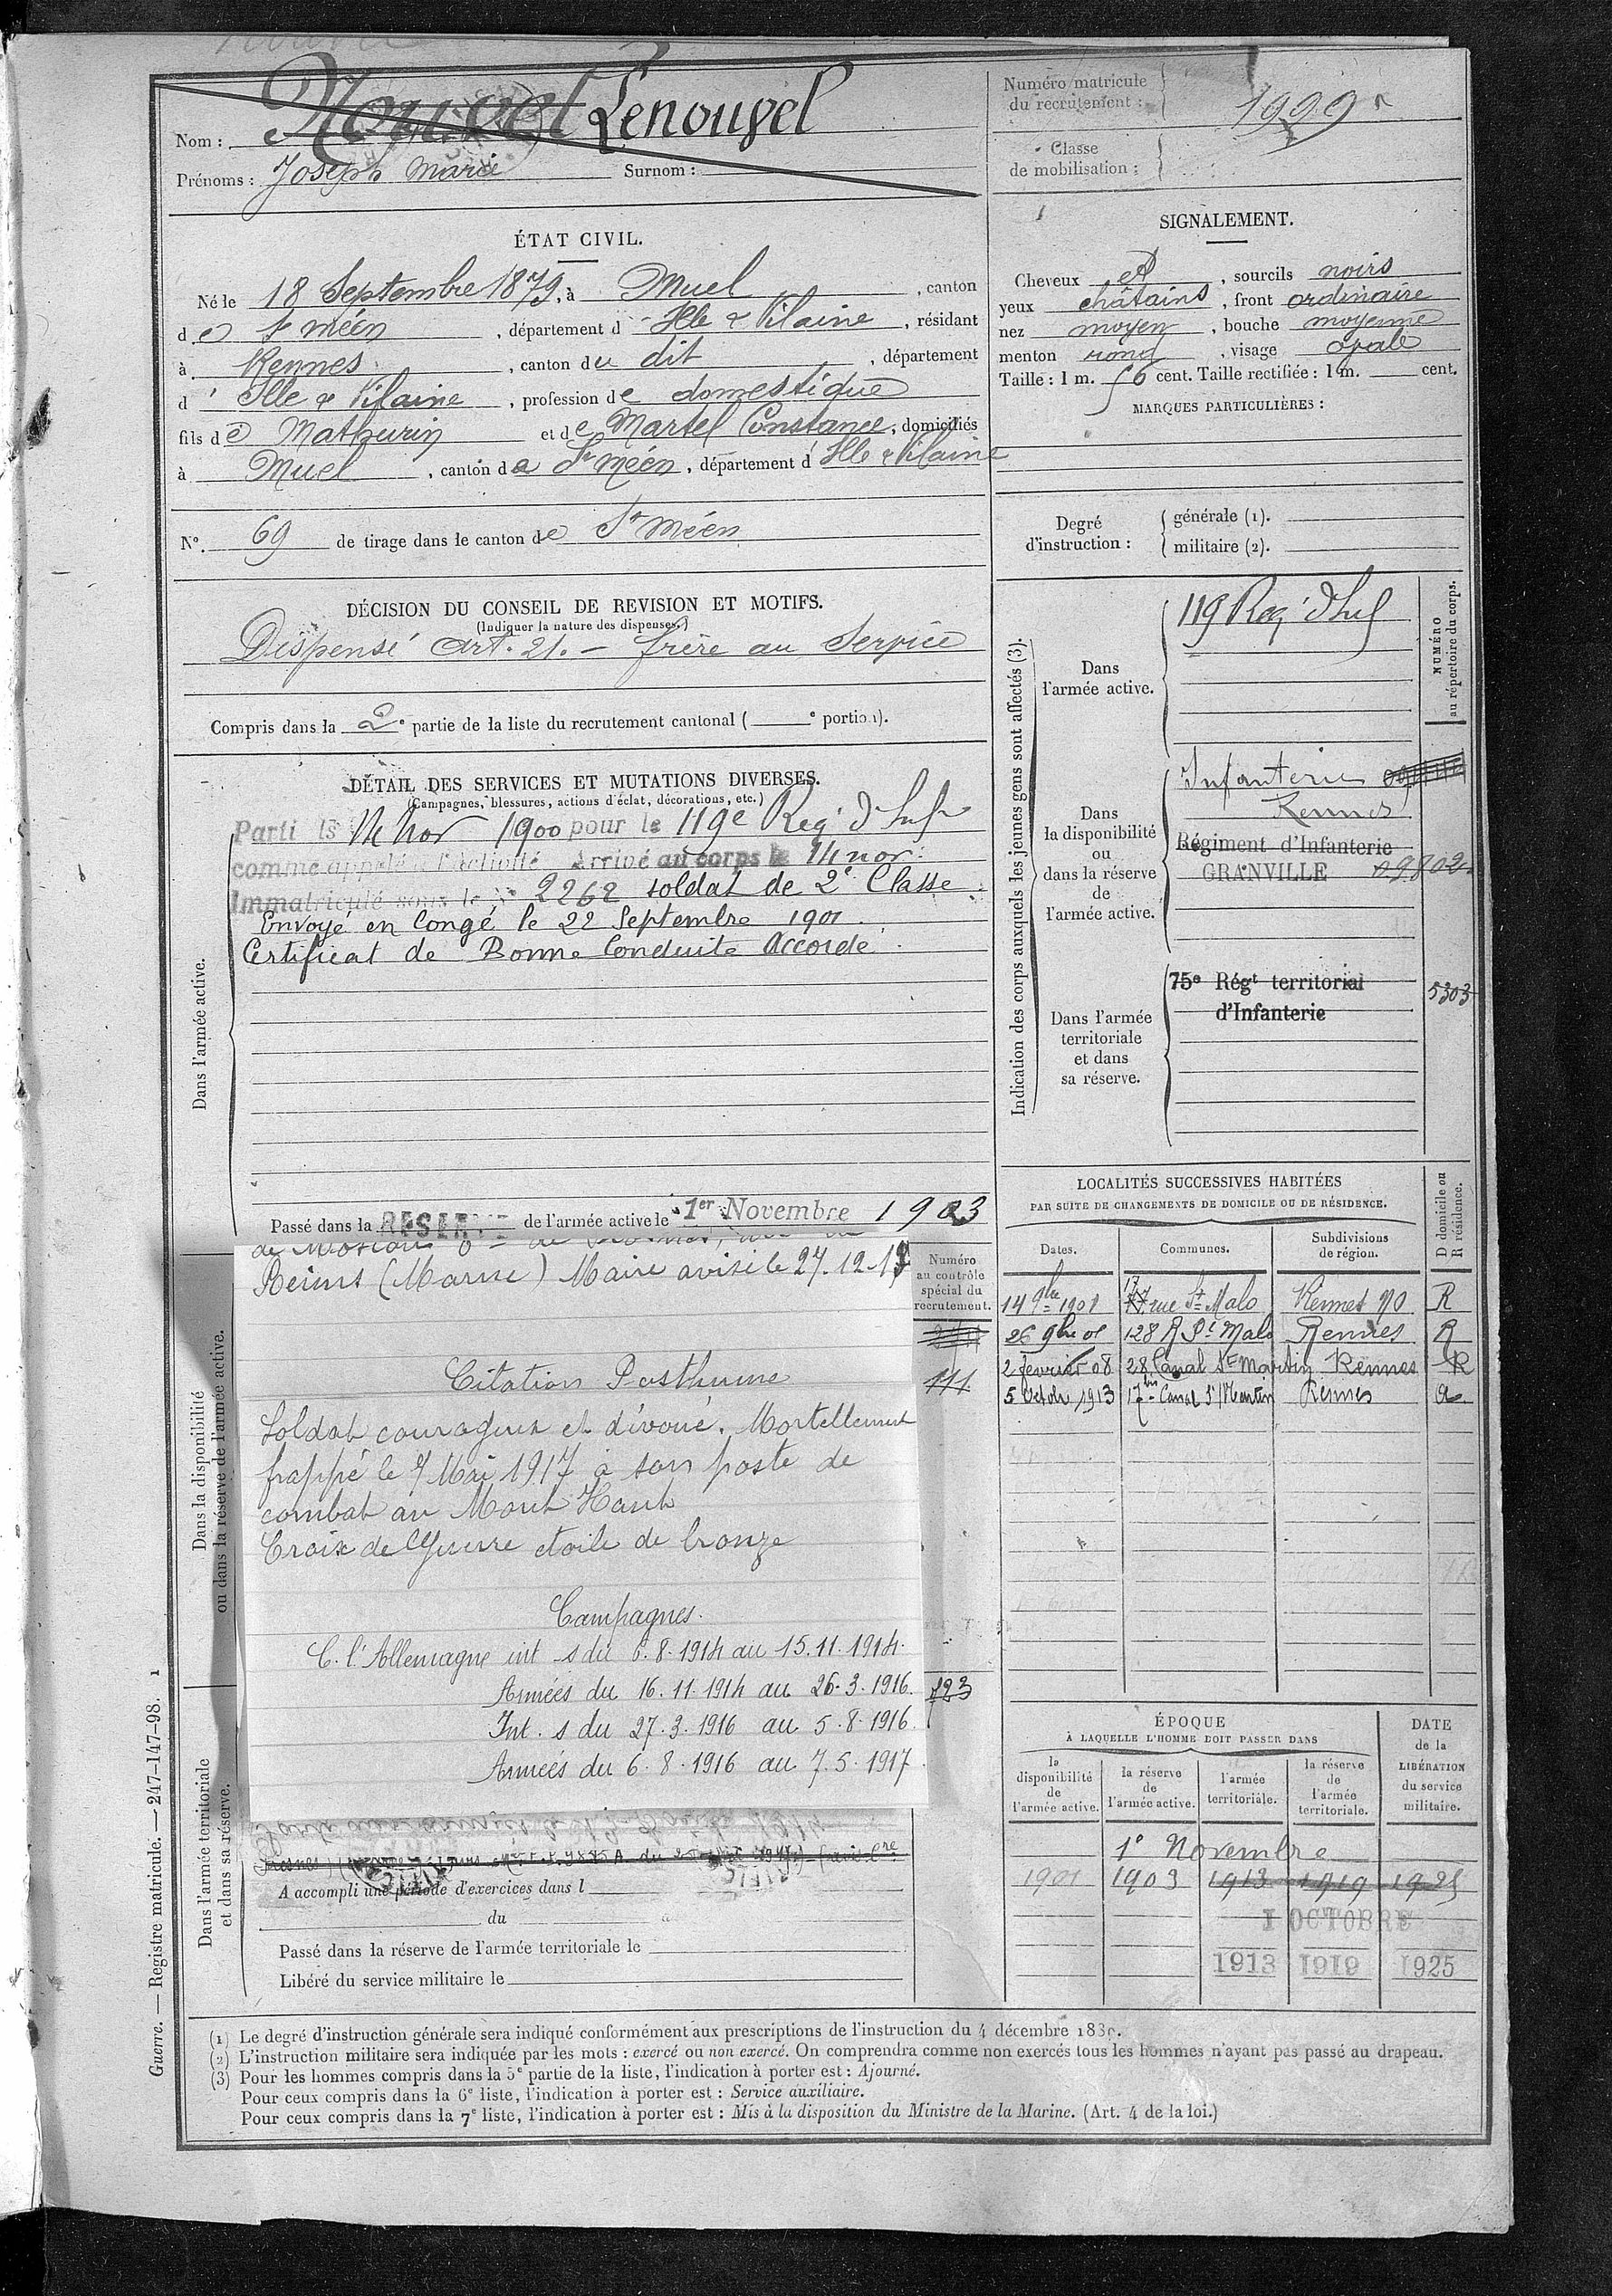 Nom : Nouvel Lenouvel
Prénoms : Joseph Marie Surnom :
Numéro matricule du recrutement : 1999
Classe de mobilisation :
ÉTAT CIVIL.
Né le 18 Septembre 1879, à Muel, canton
de St méen, département d'Ille & Vilaine, résidant
à Rennes, canton du dit, département
d'Ille & Vilaine, profession de domestique
fils de Mathurin et de Martel Constance, domiciliés
à Muel, canton de St Méen, département d'Ille & Vilaine
N°. 69 de tirage dans le canton de St Méen
SIGNALEMENT.
Cheveux et, sourcils noirs
yeux châtains, front ordinaire
nez moyen, bouche moyenne
menton rond, visage ovale
Taille : 1 m. 56 cent. Taille rectifiée : 1 m. cent.
MARQUES PARTICULIÈRES :
Degré d'instruction :
générale (1).
militaire (2).
DÉCISION DU CONSEIL DE REVISION ET MOTIFS.
(Indiquer la nature des dispenses.)
Dispensé Art. 21. - frère au Service
Compris dans la 2e partie de la liste du recrutement cantonal ( e portion).
DÉTAIL DES SERVICES ET MUTATIONS DIVERSES.
(Campagnes, blessures, actions d'éclat, décorations, etc.)
Dans l'armée active.
Parti le 14 Nov 1900 pour le 119e Reg d'Infie
comme appelé à l'activité Arrivé au corps le 14 nov.
Immatriculé sous le N° 2262 soldat de 2e Classe
Envoyé en Congé le 22 Septembre 1901.
Certificat de Bonne Conduite Accordé.
Passé dans la RÉSERVE de l'armée active le 1er Novembre 1903
Indication des corps auxquels les jeunes gens sont affectés (3).
NUMÉRO au répertoire du corps.
Dans l'armée active.
119 Reg d'Inf
Dans la disponibilité ou dans la réserve de l'armée active.
Infanterie
Rennes
Régiment d'Infanterie
GRANVILLE 09802
Dans l'armée territoriale et dans sa réserve.
75e Régt territorial
d'Infanterie
5303
LOCALITÉS SUCCESSIVES HABITÉES
PAR SUITE DE CHANGEMENTS DE DOMICILE OU DE RÉSIDENCE.
Dates. Communes. Subdivisions de région. D domicile ou R résidence.
14 9bre 1901 17 rue St Malo Rennes NO R
26 9bre 01 128 R St Malo Rennes R
2 fevrier 08 28 Canal St Martin Rennes R
5 Octobre 1913 17bis Canal St Martin Rennes
Dans la disponibilité
ou dans la réserve de l'armée active.
Numéro au contrôle spécial du recrutement.
111
Reims (Marne) Maire avisé le 27.12.18
Citation Posthume
Soldat courageux et dévoué. Mortellement
frappé le 7 Mai 1917 à son poste de
combat au Mont Haut
Croix de Guerre étoile de bronze
Campagnes.
C. l'Allemagne int s du 6.8.1914 au 15.11.1914.
Armées du 16.11.1914 au 26.3.1916.
Int. s du 27.3.1916 au 5.8.1916.
Armées du 6.8.1916 au 7.5.1917.
723
Dans l'armée territoriale
et dans sa réserve.
A accompli une période d'exercices dans l
du
Passé dans la réserve de l'armée territoriale le
Libéré du service militaire le
ÉPOQUE
À LAQUELLE L'HOMME DOIT PASSER DANS
la disponibilité de l'armée active.
la réserve de l'armée active.
l'armée territoriale.
la réserve de l'armée territoriale.
DATE de la LIBÉRATION du service militaire.
1e Novembre
1901 1903 1913 1919 1925
1 OCTOBRE
1913 1919 1925
Guerre. — Registre matricule. — 247-147-98. 1
(1) Le degré d'instruction générale sera indiqué conformément aux prescriptions de l'instruction du 4 décembre
(2) L'instruction militaire sera indiquée par les mots : exercé ou non exercé. On comprendra comme non exercés tous les hommes n'ayant pas passé au drapeau.
(3) Pour les hommes compris dans la 5e partie de la liste, l'indication à porter est : Ajourné.
Pour ceux compris dans la 6e liste, l'indication à porter est : Service auxiliaire.
Pour ceux compris dans la 7e liste, l'indication à porter est : Mis à la disposition du Ministre de la Marine. (Art. 4 de la loi.)